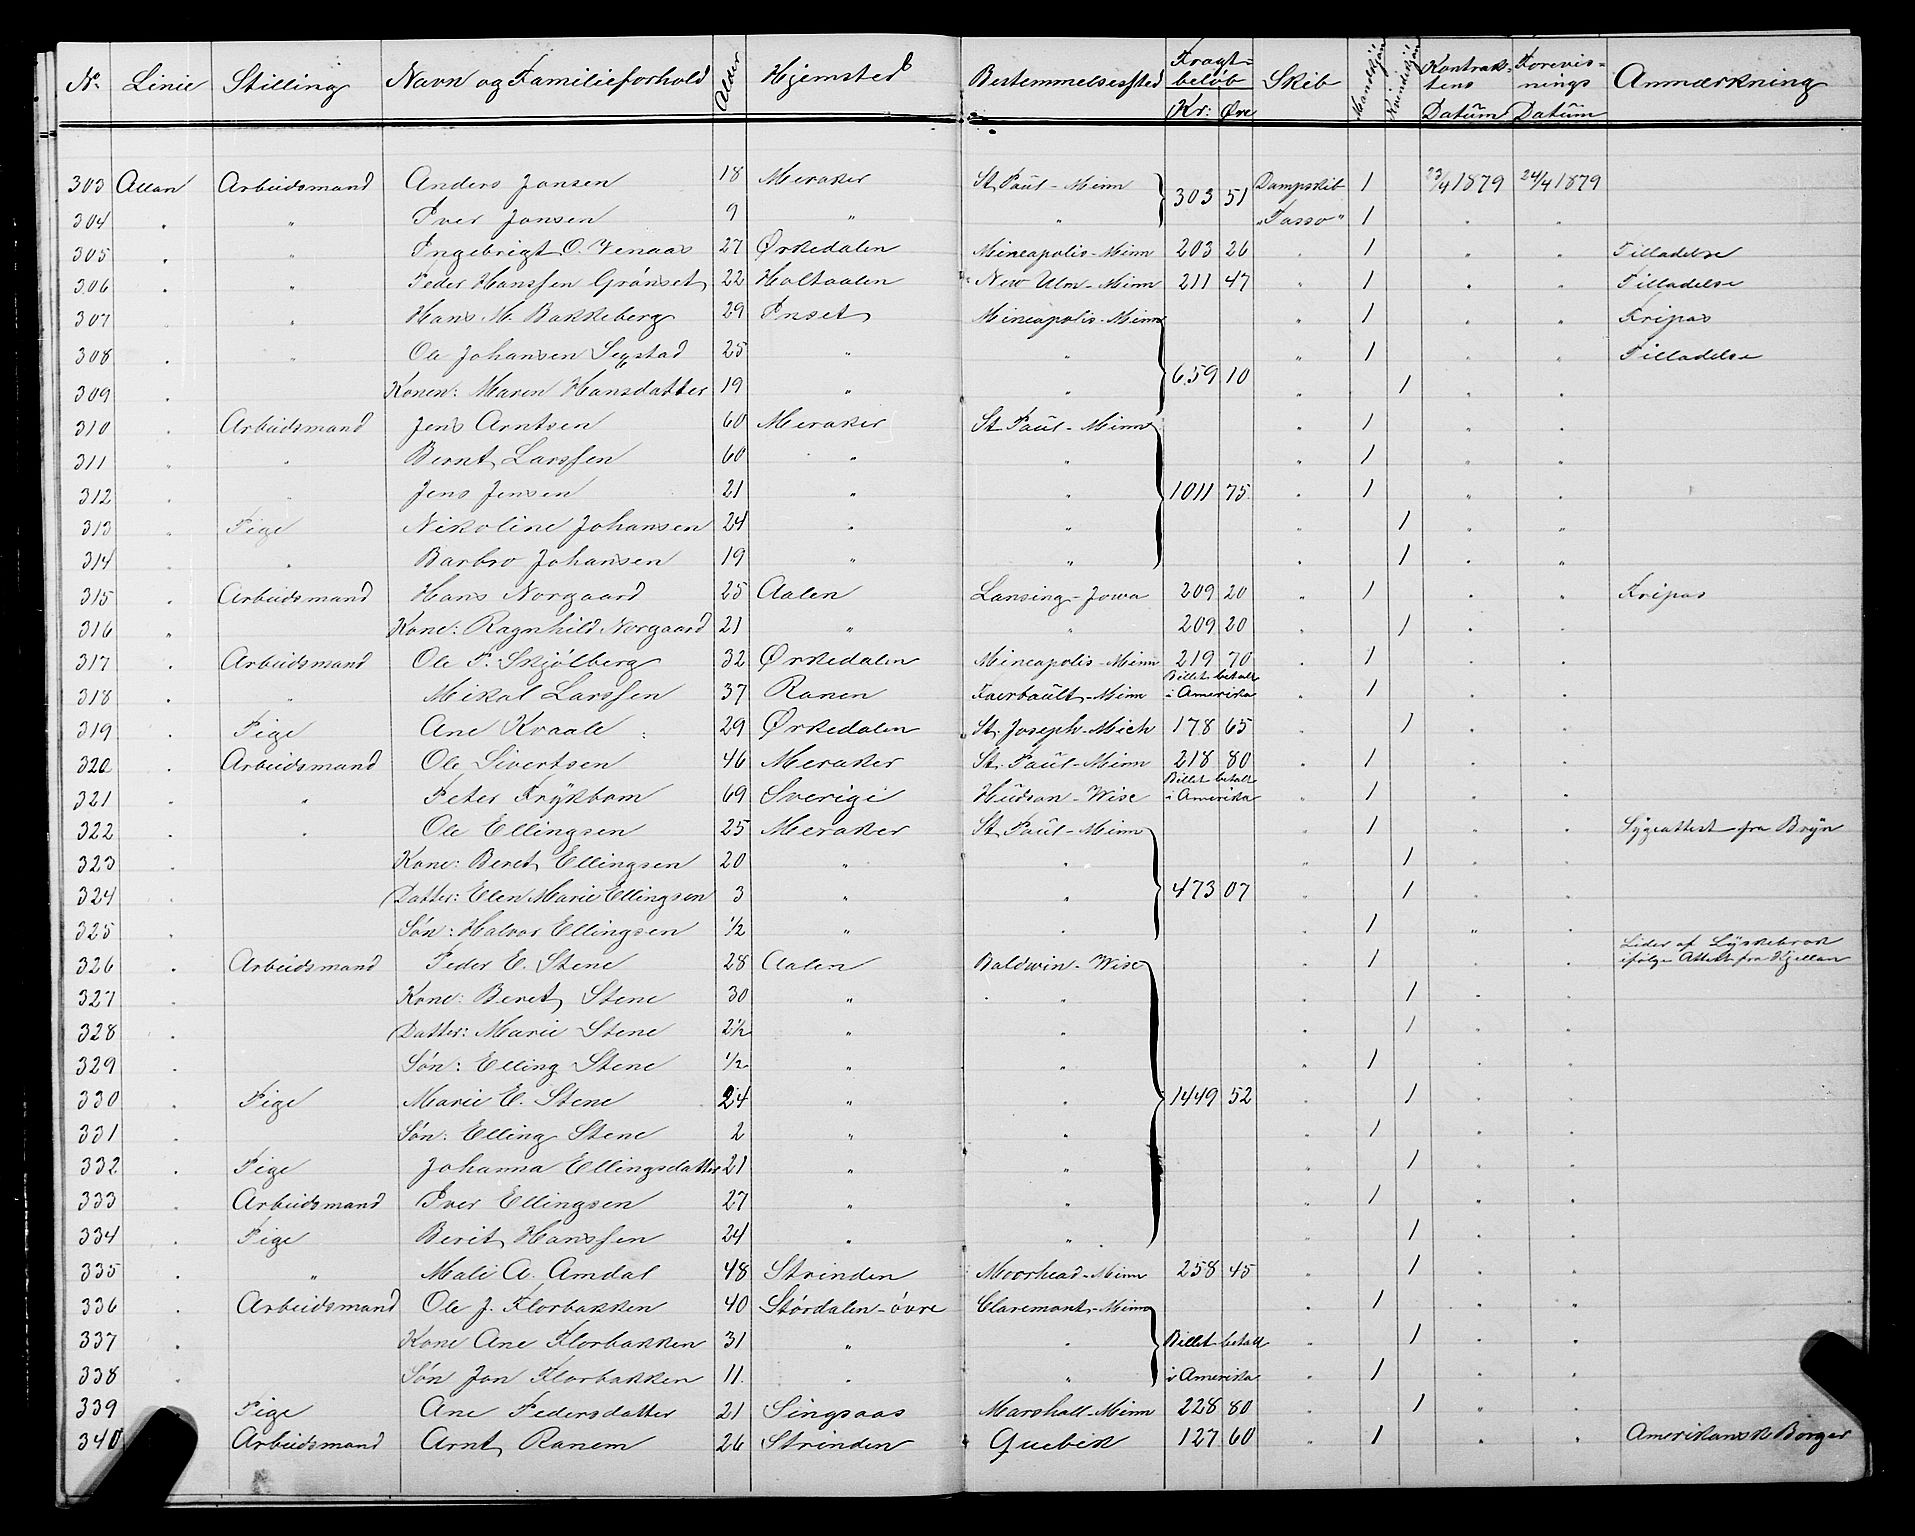 No Linie Stilling Navn og Familieforhold Alder Hjemsted Bestemmelsessted Fragtbeløb Kr: Øre Skib Mandkjøn Kvindekjøn Kontraktens Datum Forevisnings Datum Anmærkning
303 Allan Arbeidsmand Anders Jansen 18 Meraker St. Paul - Minn 303 51 Dampskib 1 23/4 1879 24/4 1879
304 " " Iver Jansen 9 " " "Tasso" 1 " "
305 " " Ingebrigt O. Venaas 27 Ørkedalen Mineapolis - Minn 203 26 " 1 " " Tilladelse
306 " " Peder Hanssen Grønset 22 Holtaalen New Ulm - Minn 211 47 " 1 " " Tilladelse
307 " " Hans M. Bakkeberg 29 Inset Mineapolis - Minn " 1 " " Fripas
308 " " Ole Johansen 25 " " " 1 " " Tilladelse
309 " Konen: Maren Hansdatter 19 " " 659 10 " 1 " "
310 " Arbeidsmand Jens Arntsen 60 Meraker St. Paul - Minn " 1 " "
311 " " Bernt Larssen 60 " " " 1 " "
312 " " Jens Jensen 21 " " 1011 75 " 1 " "
313 " Pige Nikoline Johansen 24 " " " 1 " "
314 " " Barbro Johansen 19 " " " 1 " "
315 " Arbeidsmand Hans Norgaard 25 Aalen Lansing - Jowa 209 20 " 1 " " Fripas
316 " Kone: Ragnhild Norgaard 21 " " 209 20 " 1 " "
317 " Arbeidsmand Ole P. Skjølberg 32 Ørkedalen Mineapolis - Minn 219 70 " 1 " "
318 " " Mikal Larssen 37 Ranen Faerbault - Minn Billet betalt i Amerika " 1 " "
319 " Pige Ane Kvaale 29 Ørkedalen St. Joseph - Mich 178 65 " 1 " "
320 " Arbeidsmand Ole Sivertsen 46 Meraker St. Paul - Minn 218 80 " 1 " "
321 " " Peter Frykbom 69 Sverige Hudson - Wisc Billet betalt i Amerika " 1 " "
322 " " Ole Ellingsen 25 Meraker St. Paul - Minn " 1 " " Sygeattest fra Bryn
323 " Kone: Beret Ellingsen 20 " " " 1 " "
324 " Datter: Elen Marie Ellingsen 3 " " 473 07 " 1 " "
325 " Søn: Halvor Ellingsen 1/2 " " " 1 " "
326 " Arbeidsmand Peder E. Stene 28 Aalen Baldwin - Wisc " 1 " " Lider af Lyskebrok ifølge Attest fra
327 " Kone: Beret Stene 30 " " " 1 " "
328 " Datter: Marie Stene 2 1/2 " " " 1 " "
329 " Søn: Elling Stene 1/2 " " " 1 " "
330 " Pige Marie E. Stene 24 " " 1449 52 " 1 " "
331 " Søn: Elling Stene 2 " " " 1 " "
332 " Pige Johanna Ellingsdatter 21 " " " 1 " "
333 " Arbeidsmand Iver Ellingsen 27 " " " 1 " "
334 " Pige Berit Hanssen 24 " " " 1 " "
335 " " Mali A. Amdal 48 Strinden Moorhead - Minn 258 45 " 1 " "
336 " Arbeidsmand Ole J. Florbakken 40 Størdalen - øvre Claremont - Minn " 1 " "
337 " Kone Ane Florbakken 31 " " Billet betalt " 1 " "
338 " Søn Jon Florbakken 11 " " i Amerika " 1 " "
339 Pige Ane Pedersdatter 21 Singsaas Marshall - Minn 228 80 " 1 " "
340 Arbeidsmand Arnt Ranem 26 Strinden Quebek 127 60 " 1 " " Amerikansk Borger